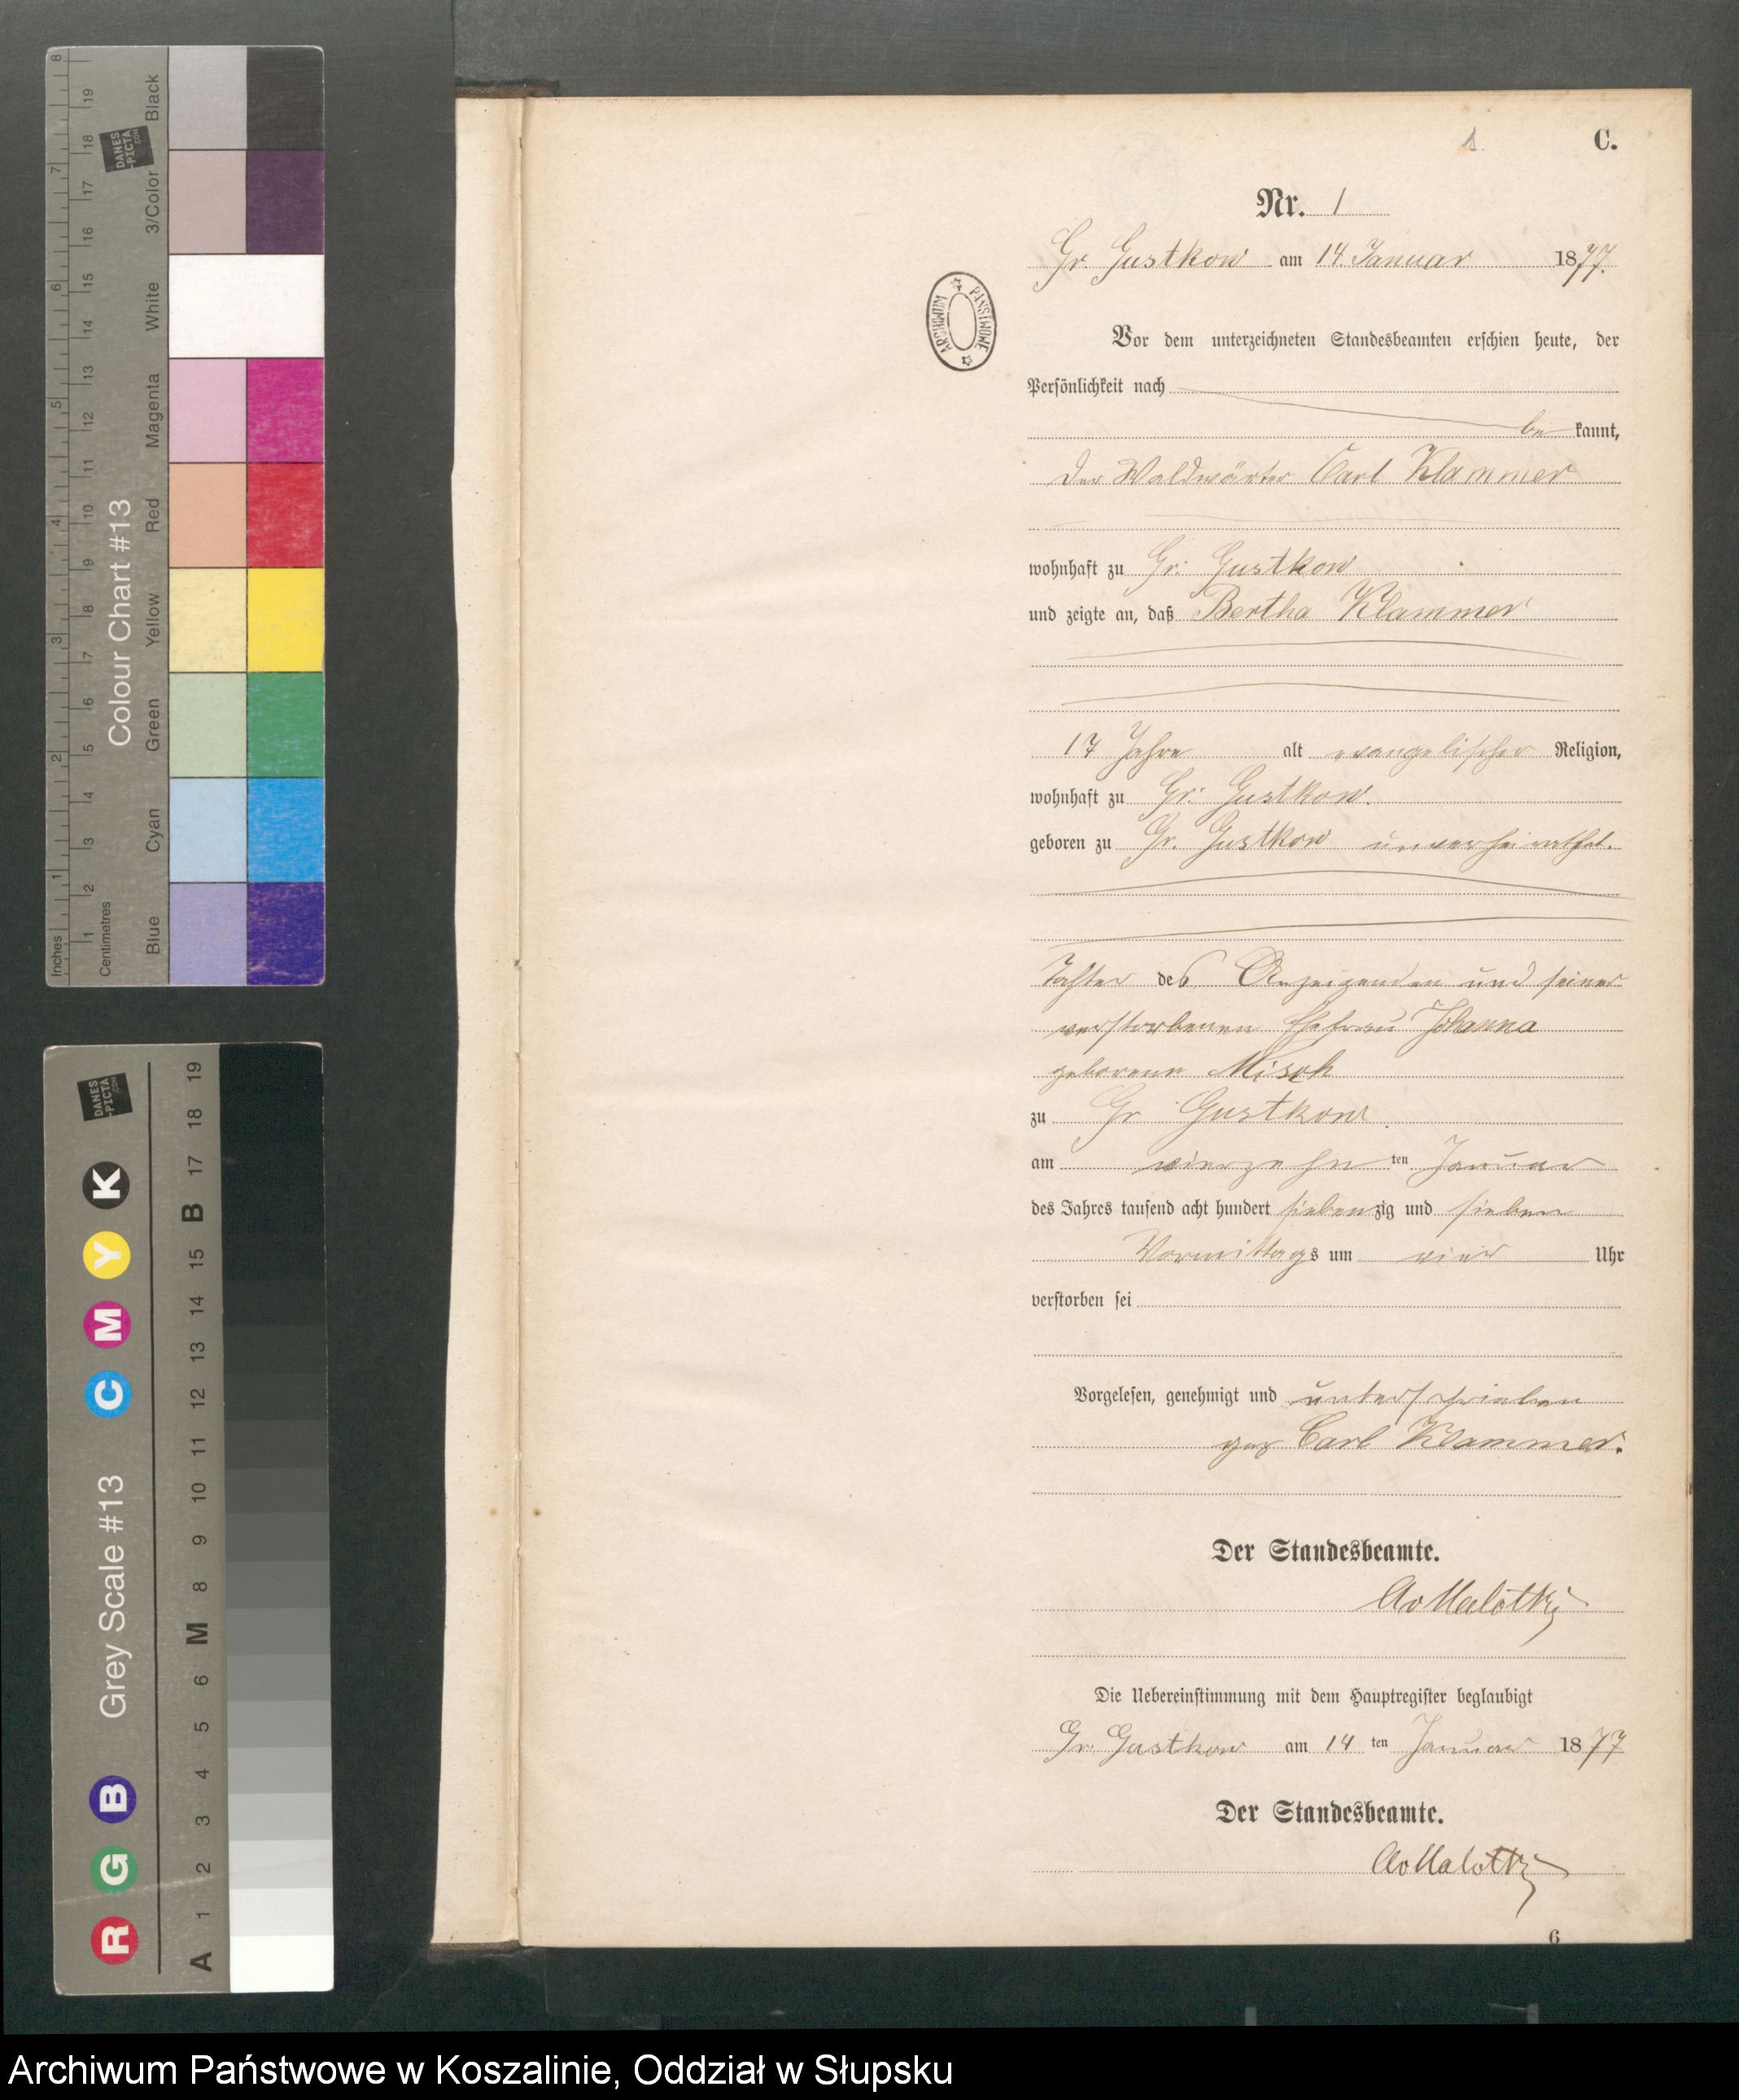 1.
C.
Nr. 1
Gr. Gustkow am 14. Januar 1877.
Vor dem unterzeichneten Standesbeamten erschien heute, der
Persönlichkeit nach
bekannt,
der Waldwärter Carl Klammer
wohnhaft zu Gr. Gustkow
und zeigte an, daß Bertha Klammer
17 Jahre alt evangelischer Religion,
wohnhaft zu Gr. Gustkow.
geboren zu Gr. Gustkow unverheirathet.
Tochter des Anzeigenden und seiner
verstorbenen Ehefrau Johanna
geborene Misch
zu Gr Gustkow.
am vierzehnten Januar
des Jahres tausend acht hundert siebenzig und sieben
Vormittags um vier Uhr
verstorben sei
Vorgelesen, genehmigt und unterschrieben
gez Carl Klammer.
Der Standesbeamte.
AvMalottki
Die Uebereinstimmung mit dem Hauptregister beglaubigt
Gr. Gustkow am 14 ten Januar 1877
Der Standesbeamte.
AvMalottki
6
ARCHIWUM PAŃSTWOWE
Colour Chart #13
Blue Cyan Green Yellow Red Magenta White 3/Color Black
Inches 1 2 3 4 5 6 7 8
Centimetres 1 2 3 4 5 6 7 8 9 10 11 12 13 14 15 16 17 18 19
DANES
-PICTA
.COM
Grey Scale #13
R G B C M Y K
A 1 2 3 4 5 6 M 8 9 10 11 12 13 14 15 B 17 18 19
DANES
-PICTA
.COM
Archiwum Państwowe w Koszalinie, Oddział w Słupsku